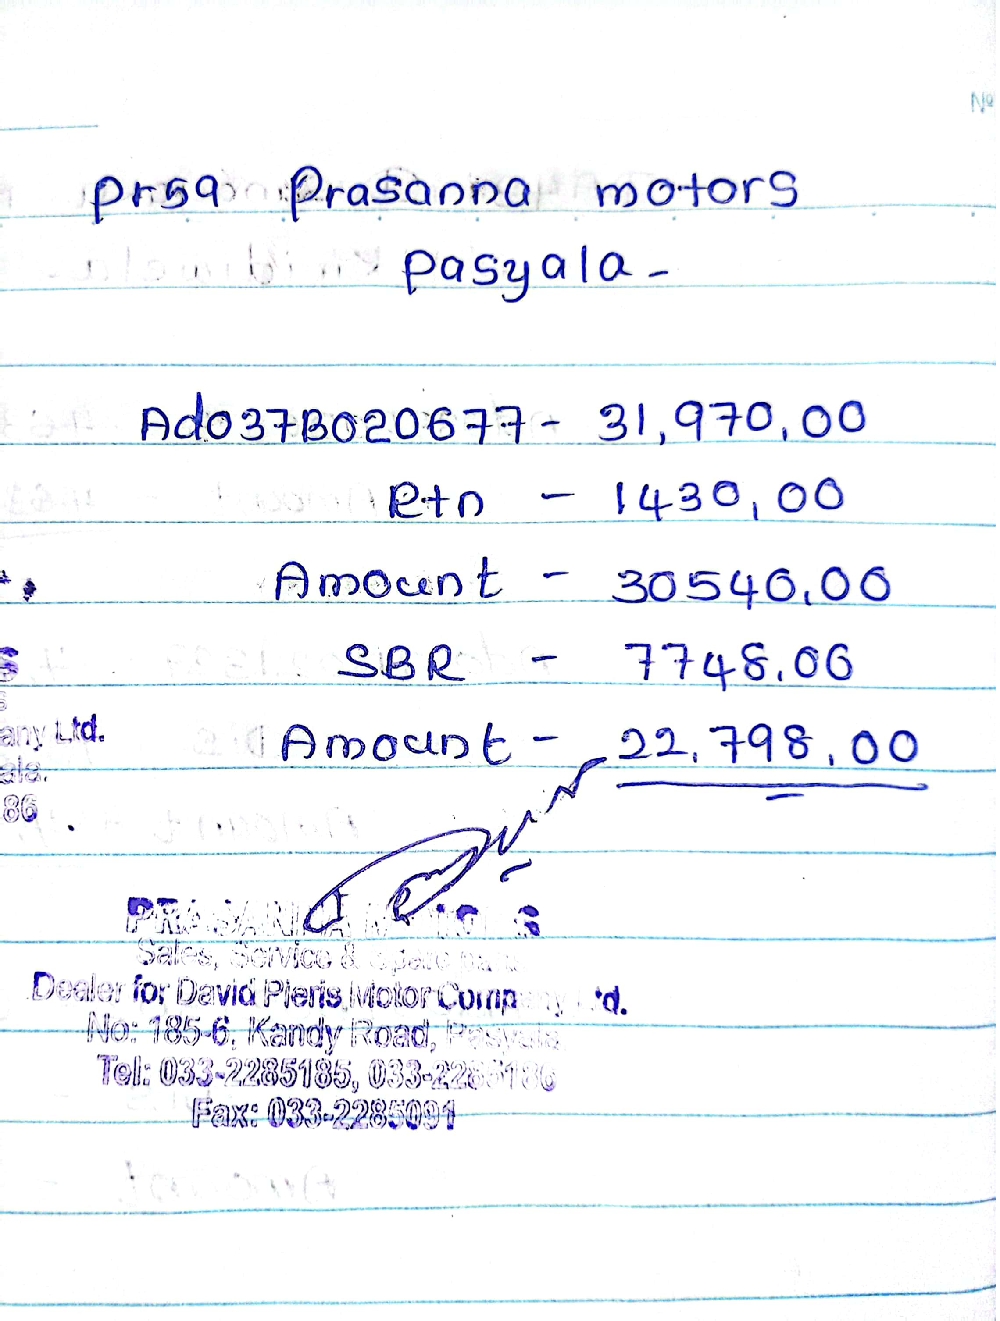 No
Pr59 Prasanna motors
Pasyala -
Ad037B020677 - 31,970,00
Rtn - 1430,00
Amount - 30540,00
SBR - 7748.00
Amount - 22,798,00
any Ltd.
ala.
86
PRASANNA MOTORS
Sales, Service &
Dealer for David Pieris Motor Company Ltd.
No: 185-6, Kandy Road, Pasyala
Tel: 033-2285185, 033-2285186
Fax: 033-2285091